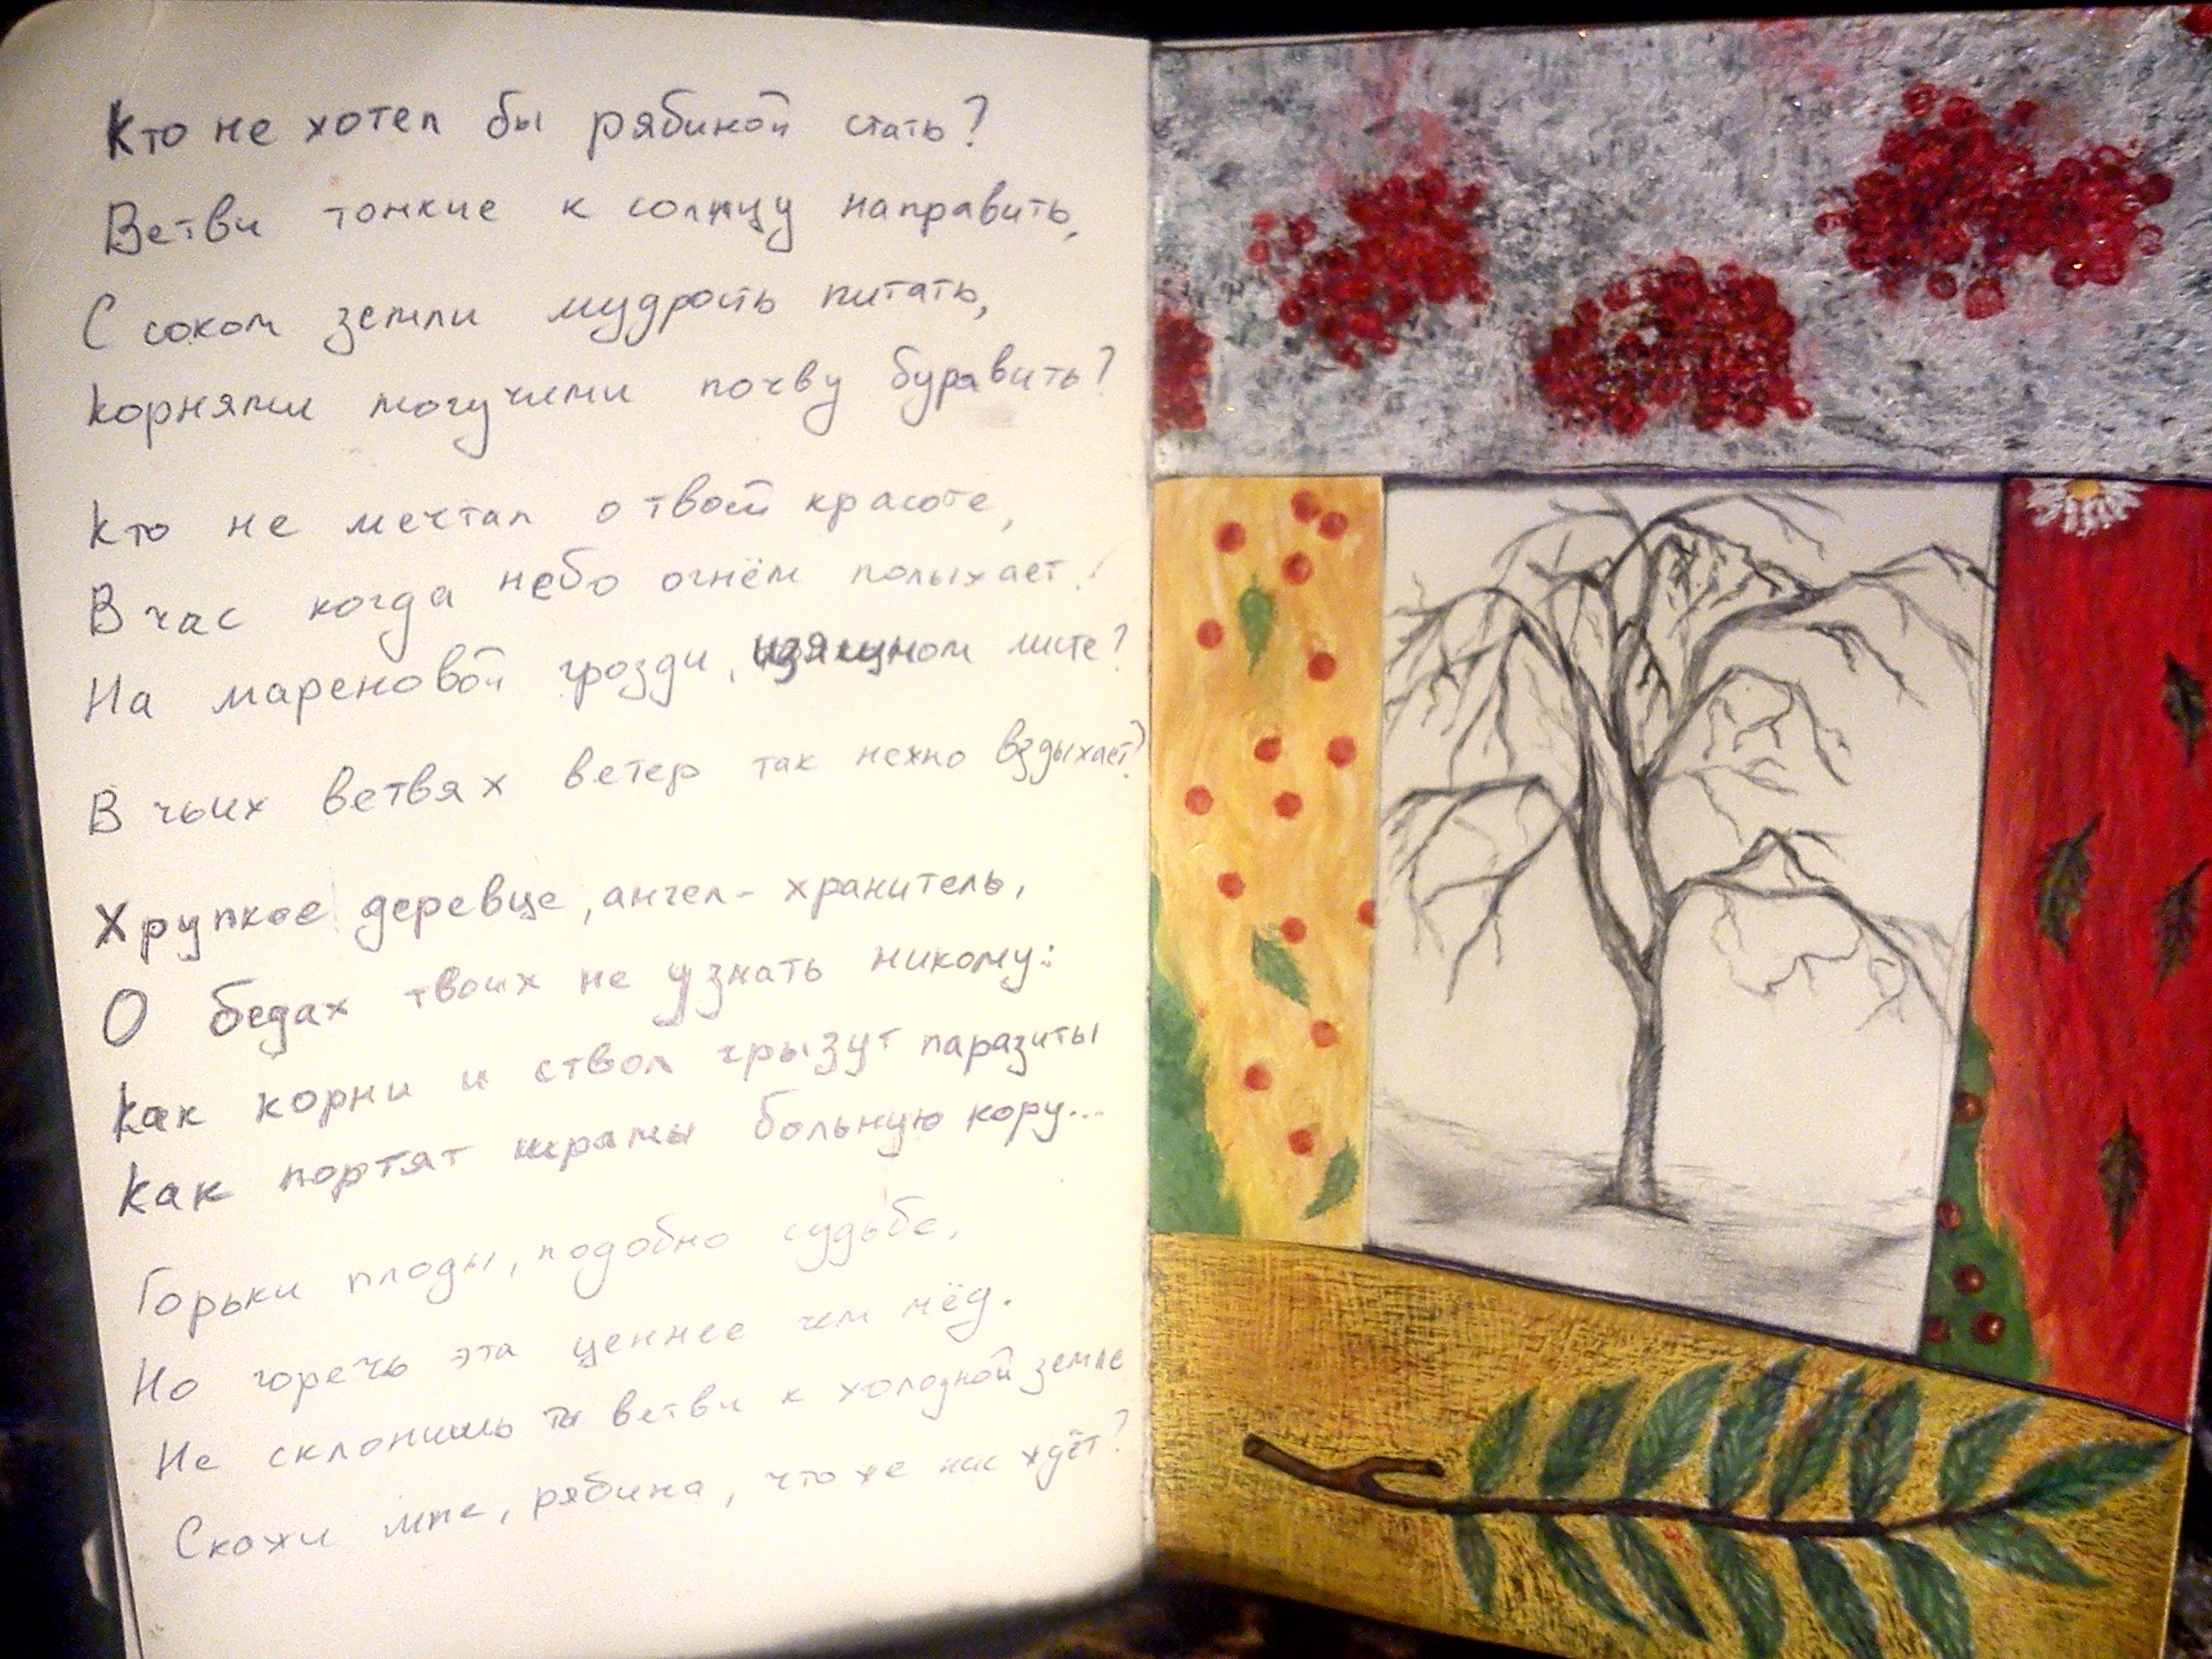 Кто не хотел бы рябиной стать?
Ветви тонкие к солнцу направить,
С соком земли мудрость питать,
Корнями могучими почву буравить?
Кто не мечтал о твоей красоте,
В час когда небо огнём полыхает!
На мареновой грозди, изящном листе?
В чьих ветвях ветер так нежно вздыхает?
Хрупкое деревце, ангел-хранитель,
О бедах твоих не узнать никому:
Как корни и ствол грызут паразиты
Как портят шрамы больную кору...
Горьки плоды, подобно судьбе,
Но горечь эта ценнее чем мёд.
Не склонишь ты ветви к холодной земле
Скажи мне, рябина, что же нас ждёт?